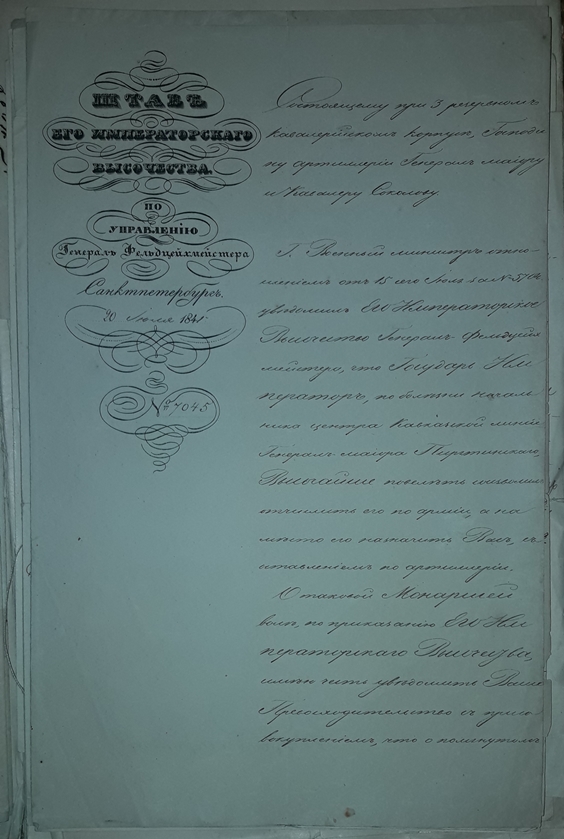 ШТАБЪ
ЕГО ИМПЕРАТОРСКАГО
ВЫСОЧЕСТВА.
ПО
УПРАВЛЕНІЮ
Генералъ Фельдцейхмейстера
Санктпетербургъ.
20 Іюля 1841
№ 7045
Состоящему при 3 резервномъ
кавалерійскомъ корпусѣ, Господи
ну артиллеріи Генералъ маіору
и Кавалеру Соколову
Г. Военный министръ отно-
шеніемъ отъ 15 сего Іюля за №
увѣдомилъ Его Императорское
Высочество Генералъ Фельдцейх
мейстера, что Государь Им
ператоръ, по болѣзни началь
ника центра Кавказской линіи
Генералъ маіора
Высочайше повелѣть соизволилъ
отчислить его по арміи, а на
мѣсто его назначить Васъ, съ
оставленіемъ по артиллеріи.
О таковой Монаршей
волѣ, по приказанію Его Им
ператорскаго Высочества,
имѣю честь увѣдомить Ваше
Превосходительство съ присо
вокупленіемъ, что о помянутомъ